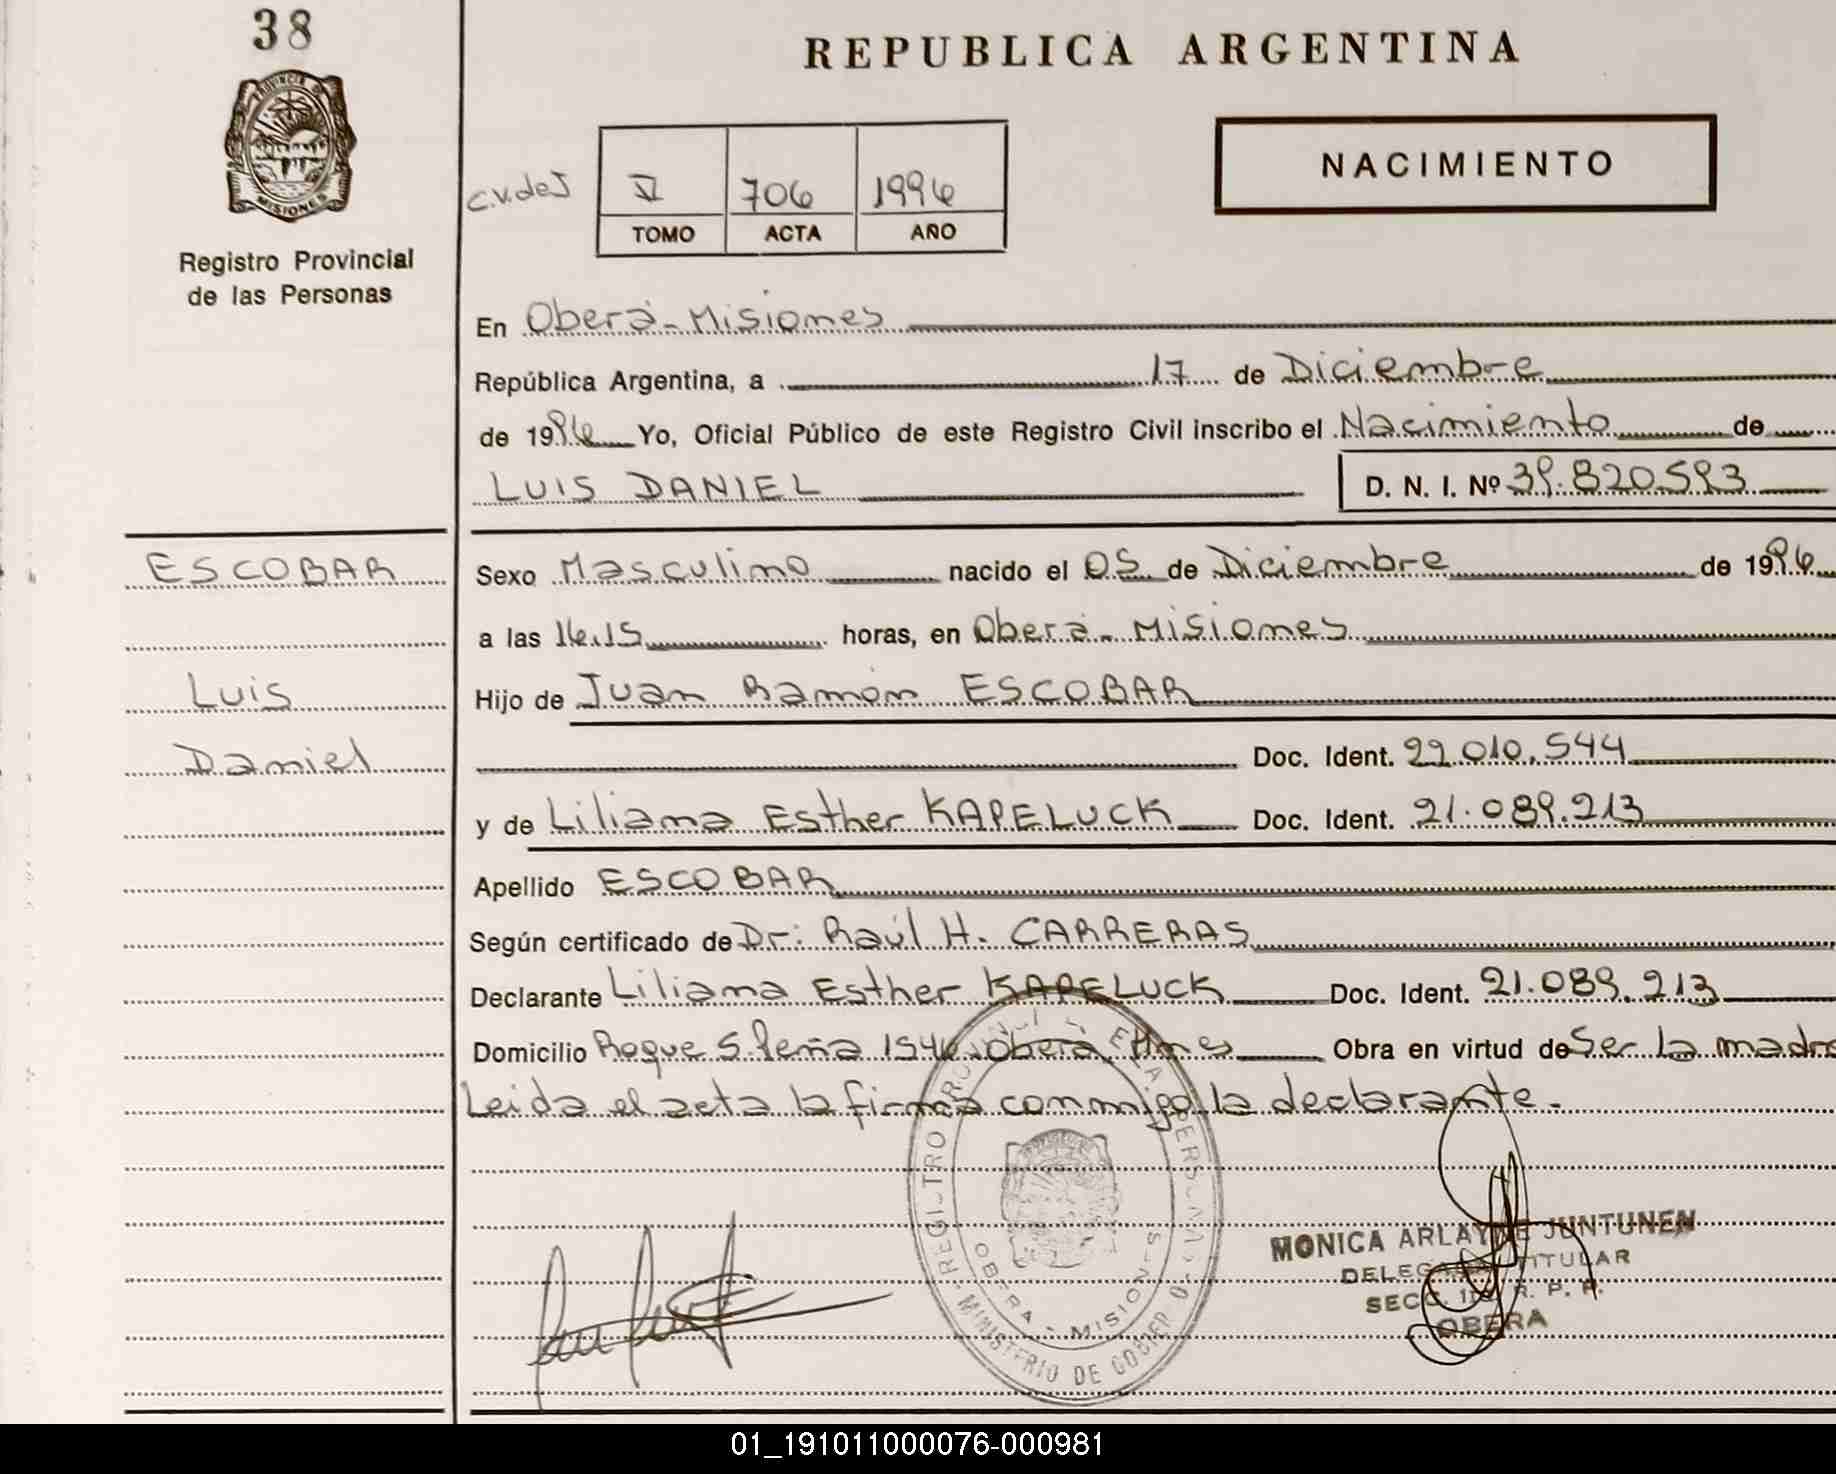 38
REPUBLICA ARGENTINA
PROVINCIA DE
MISIONES
Registro Provincial
de las Personas
C.V.deJ
V 706 1996
TOMO ACTA AÑO
NACIMIENTO
En Oberá - Misiones
República Argentina, a 17 de Diciembre
de 1996 Yo, Oficial Público de este Registro Civil inscribo el Nacimiento de
LUIS DANIEL D. N. I. Nº 39.820.593
ESCOBAR
Luis
Daniel
Sexo Masculino nacido el 05 de Diciembre de 1996
a las 16.15 horas, en Oberá - Misiones
Hijo de Juan Ramón ESCOBAR
Doc. Ident. 22.010.544
y de Liliana Esther KAPELUCK Doc. Ident. 21.089.213
Apellido ESCOBAR
Según certificado de Dr: Raúl H. CARRERAS
Declarante Liliana Esther KAPELUCK Doc. Ident. 21.089.213
Domicilio Roque S. Peña 1546 Oberá Mnes Obra en virtud de Ser la madre
Leida el acta la firma conmigo la declarante.
REGISTRO PROVINCIAL DE LAS PERSONAS
OBERA - MISIONES
MINISTERIO DE GOBIERNO
MONICA ARLAYNE JUNTUNEN
DELEGADA TITULAR
SECC. R. P. P.
OBERA
01_191011000076-000981